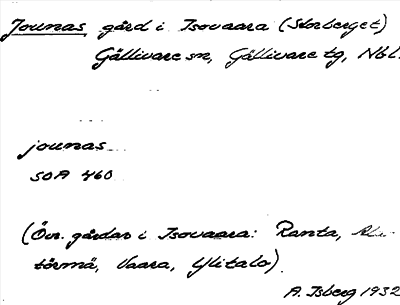 Jounas gård i Isovaara (Storberget)
Gällivare sn, Gällivare tg, Nbl.
jounas
SOA 460
(Övr. gårdar i Isovaara: Ranta,
törmä, Vaara, Ylitalo).
A. Isberg 1932